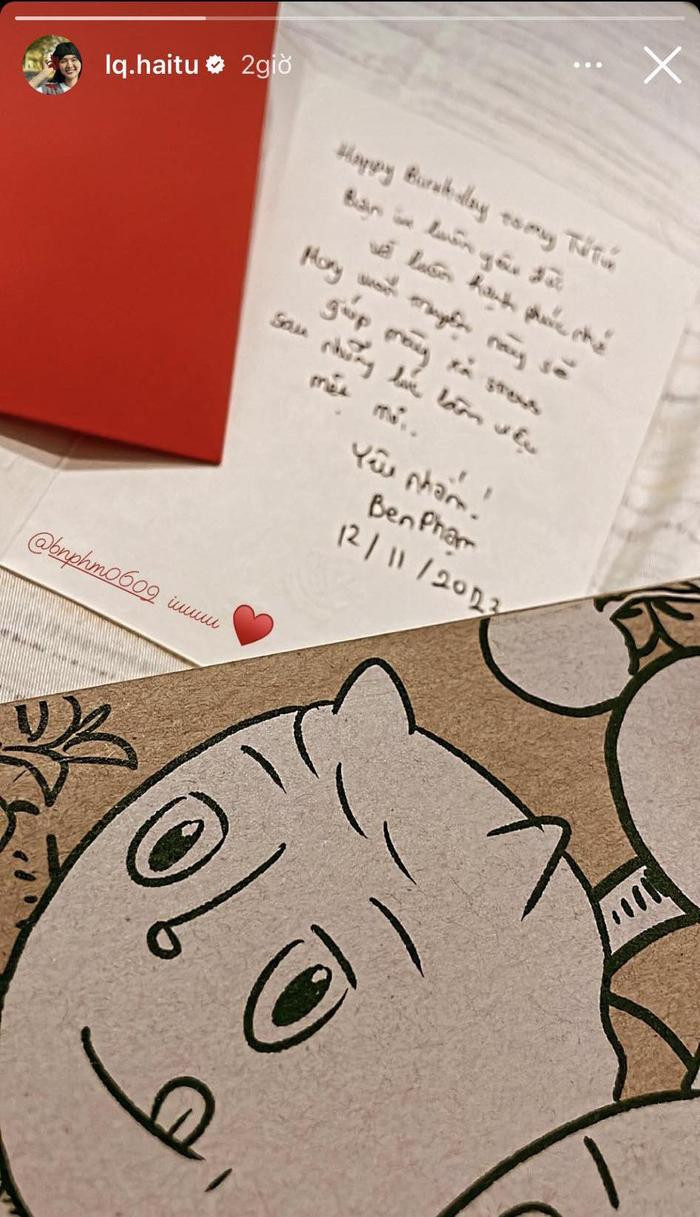 lq.haitu 2giờ
Happy Birthday to my Tú Tú
Bạn iu luôn yêu đời
và luôn hạnh phúc nhé
Mong cuốn truyện này sẽ
giúp mày xả stress
sau những lúc làm việc
mệt mỏi..
Yêu nhắm!
Ben Phạm
12/11/2023
@bnphm0609 iuuuu